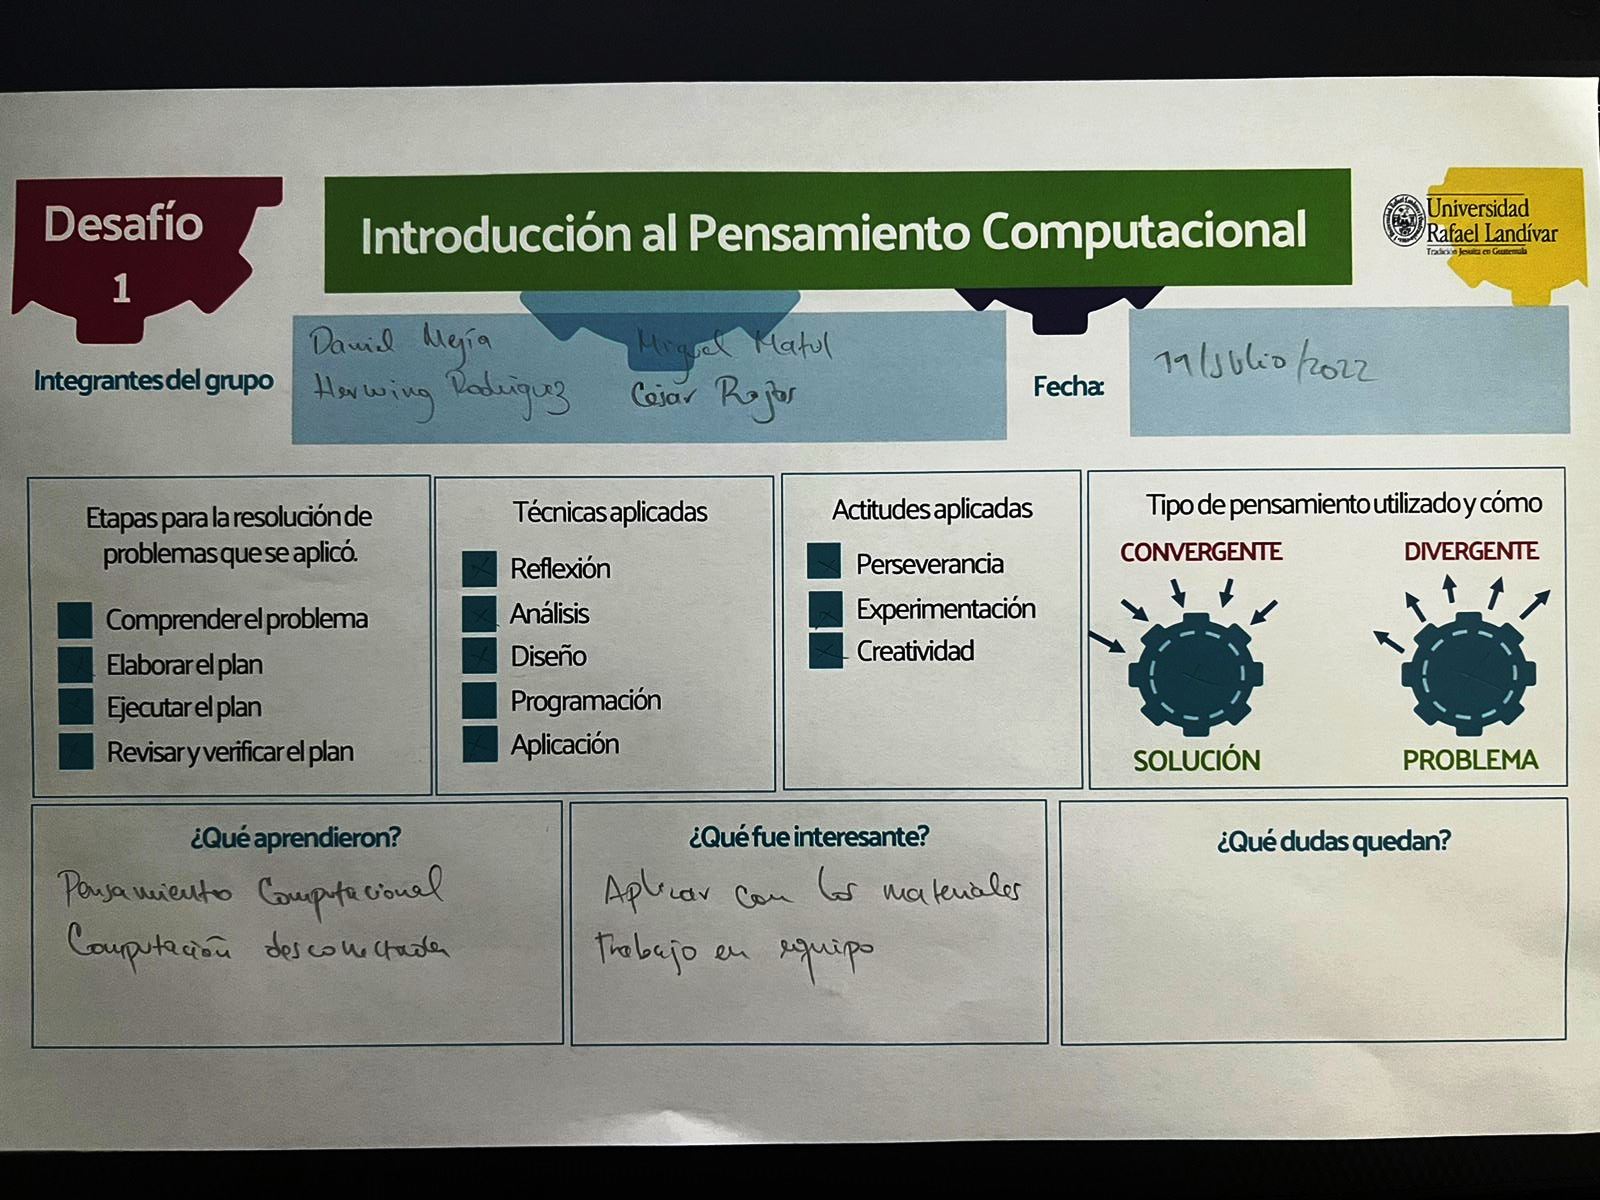 Desafío
1
Introducción al Pensamiento Computacional
Universidad
Rafael Landívar
Tradición Jesuita en Guatemala
Integrantes del grupo
Daniel Mejía Miguel Matul
Herwing Rodriguez César Rojas
Fecha:
19/Julio/2022
Etapas para la resolución de
problemas que se aplicó.
Comprender el problema
Elaborar el plan
Ejecutar el plan
Revisar y verificar el plan
Técnicas aplicadas
Reflexión
Análisis
Diseño
Programación
Aplicación
Actitudes aplicadas
Perseverancia
Experimentación
Creatividad
Tipo de pensamiento utilizado y cómo
CONVERGENTE
SOLUCIÓN
DIVERGENTE
PROBLEMA
¿Qué aprendieron?
Pensamiento Computacional
Computación desconectada
¿Qué fue interesante?
Aplicar con los materiales
trabajo en equipo
¿Qué dudas quedan?